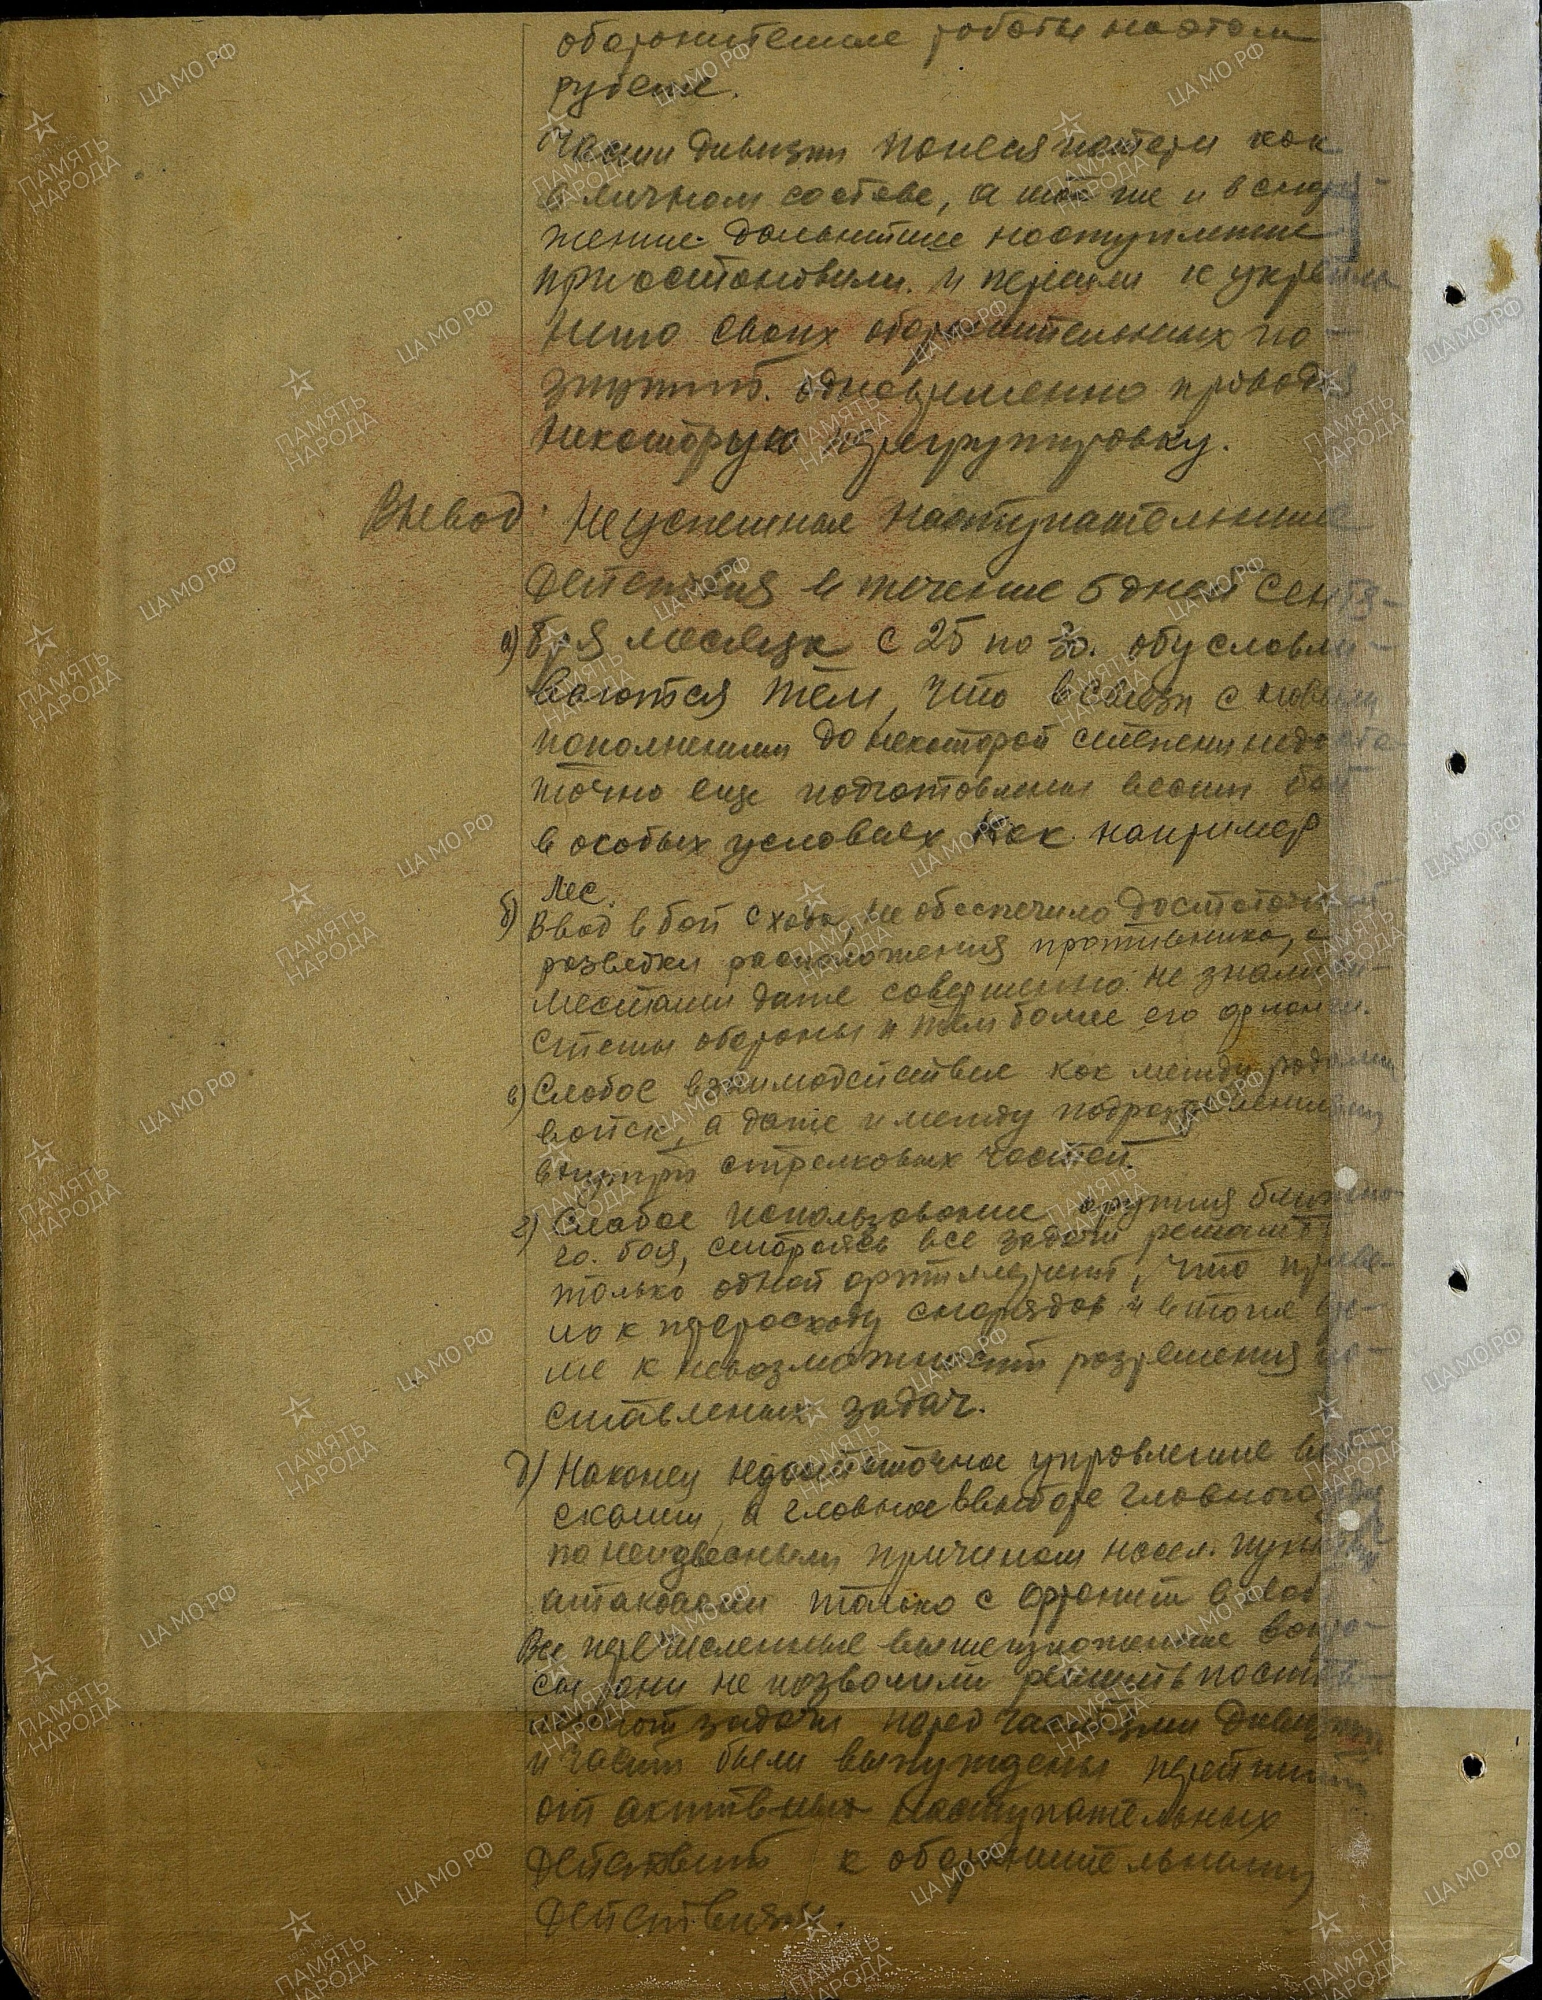 оборонительные работы на этом
рубеже.
Части дивизии понеся потери как
в личном составе, а так же и в снаря-
жение. Дальнейшее наступление
приостановили. и перешли к укрепле
нию своих оборонительных по-
зиций. одновременно проводя
некоторую перегруппировку.
Вывод. Неуспешные наступательные
действия в течение 5 дней сентя-
а) бря месяца с 25 по 30. обусловли-
ваются тем, что в связи с новым
пополнением до некоторой степени недоста-
точно еще подготовлены вести бой
в особых условиях как например
лес.
б) Ввод в бой с хода, не обеспечило достаточной
разведки расположения противника, а
местами даже совершенно не знали си-
стемы обороны и тем более его фланги.
в) Слабое взаимодействие как между родами
войск, а даже и между подразделениями
внутри стрелковых частей.
г) Слабое использование оружия ближне-
го. боя, стараясь все задачи решать
только одной артиллерией, что приве-
ло к перерасходу снарядов и в тоже вре-
мя к невозможности разрешения по-
ставленных задач.
д) Наконец недостаточное управление вой-
сками, а главное в выборе главного
по неизвестным причинам насел. пункты
атаковали только с фронта в лоб
Все перечисленные вышеизложенные вопро-
сы они не позволили решить постав-
ленной задачи перед частями дивизии
и части были вынуждены перейти
от активных наступательных
действий к оборонительным
действиям.
ЦА МО РФ
ПАМЯТЬ
НАРОДА